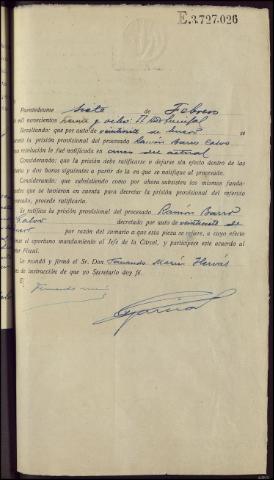 E.3.727.026
Puentedeume siete de Febrero
mil novecientos treinta y ocho. II Año Triunfal
Resultando: que por auto de veintisiete de enero se
la prisión provisional del procesado Ramón Barro Calvo
resolución le fué notificada en cinco del actual
Considerando: que la prisión debe ratificarse o dejarse sin efecto dentro de las
y dos horas siguientes a partir de la en que se notifique al procesado.
Considerando: que subsistiendo como por ahora subsisten los mismos funda-
que se tuvieron en cuenta para decretar la prisión provisional del referido
procede ratificarla.
Se ratifica la prisión provisional del procesado Ramón Barro
Calvo decretada por auto de
por razón del sumario a que esta pieza se refiere, a cuyo efecto
el oportuno mandamiento al Jefe de la Cárcel, y participese este acuerdo al
Fiscal.
Lo mandó y firmó el Sr. Don Fernando Marín Hervás
de instrucción de que yo Secretario doy fé.
Fernando
García